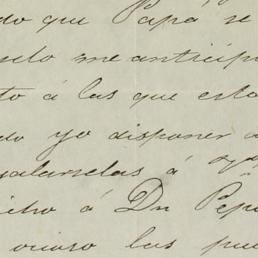 do que Papá se
me anticip
to á las que esto
do yo disponer
galarselas á
icho á Dn Pepe
ocioso las pue